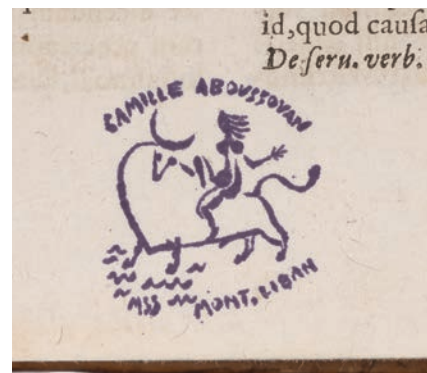 id,quod cauſa
De ſeru. verb.
CAMILLE ABOUSSOUAN
MSS MONT.LIBAN